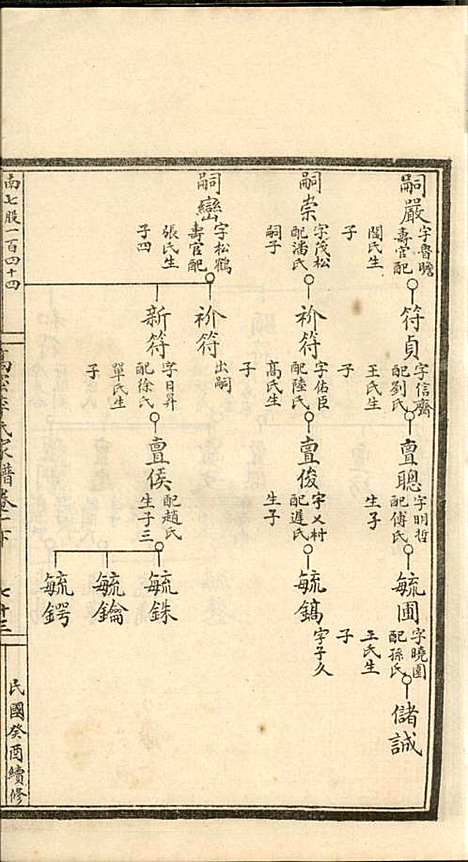 嗣嚴
字魯瞻
壽官配
閻氏生
子
符貞
字信齋
配劉氏
王氏生
子
亶聰
字明哲
配傅氏
生子
毓圃
字曉圃
配孫氏
王氏生
子
儲誠
嗣崇
字茂松
配潘氏
嗣子
符
字佑臣
配陸氏
高氏生
子
亶俊
字乂村
配遲氏
生子
毓鎬
字子久
嗣巒
字松鶴
壽官配
張氏生
子四
符
出嗣
新符
字日昇
配徐氏
單氏生
子
亶侯
配趙氏
生子三
毓銖
毓錀
毓鍔
南七股一百四十四
李氏家譜卷一下
七十三
民國癸酉續修